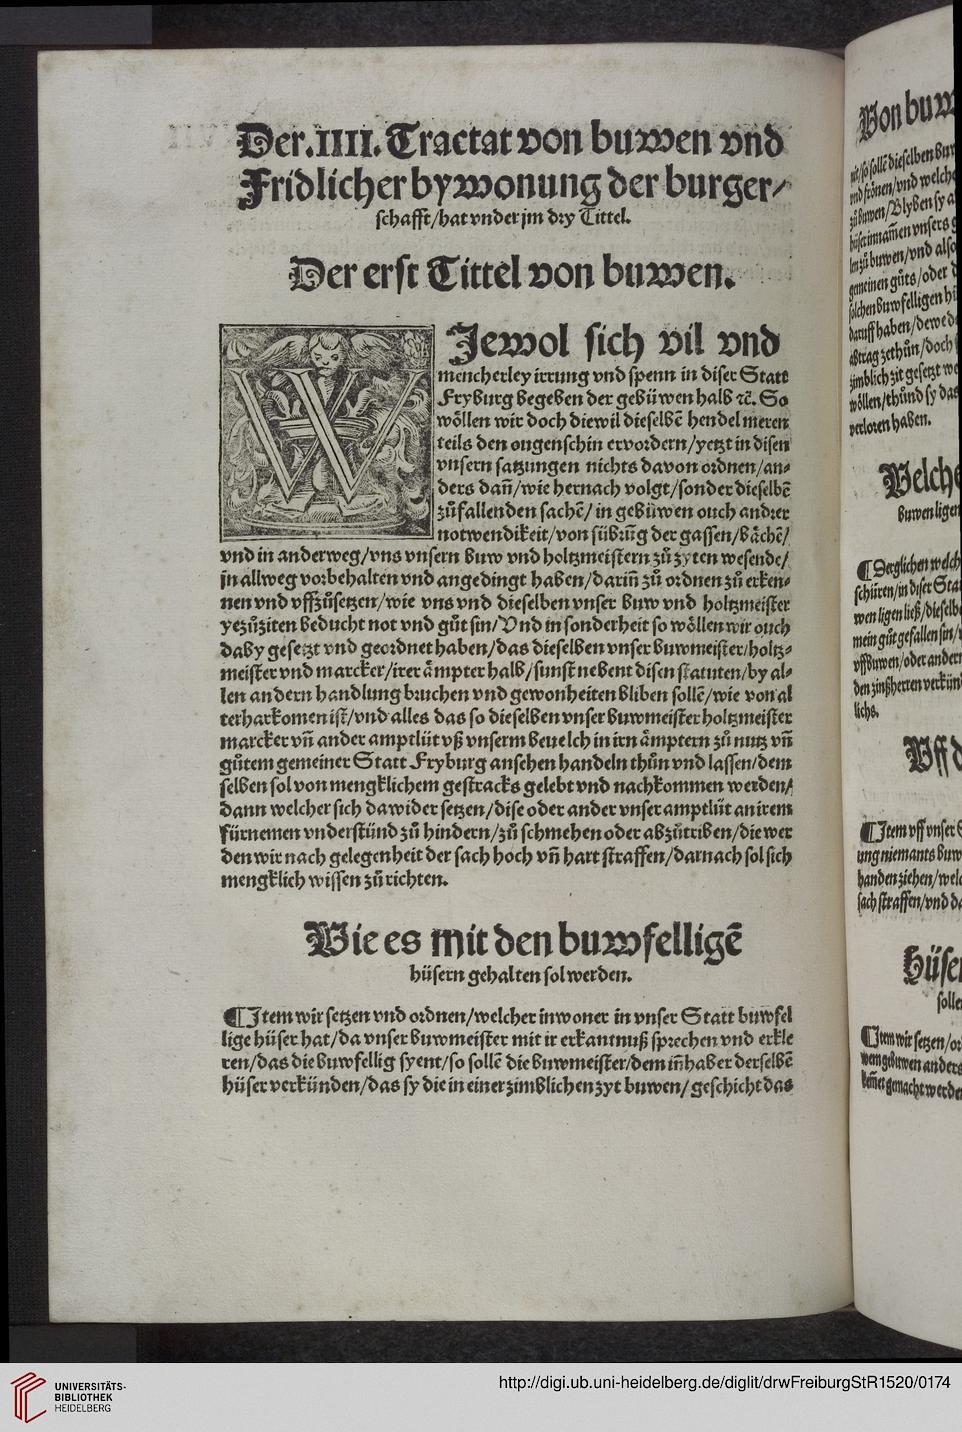 Der.IIII.Tractat von buwen vnd
Fridlicher bywonung der burger/
schafft/hat vnder jm dry Tittel.
Der erst Tittel von buwen.
WJewol sich vil vnd
mencherley irrung vnd spenn in diser Statt
Fryburg begeben der gebüwen halb ꝛc̃. So
wöllen wir doch diewil dieselbẽ hendel meren
teils den ougenschin ervordern/yetzt in disen
vnsern satzungen nichts davon ordnen/an⸗
ders dañ/wie hernach volgt/sonder dieselbẽ
zůfallenden sachẽ/in gebüwen ouch andrer
notwendikeit/von sübrũg der gassen/bächẽ/
vnd in anderweg/vns vnsern buw vnd holtzmeistern zů zyten wesende/
jn allweg vorbehalten vnd angedingt haben/dariñ zů ordnen zů erken⸗
nen vnd vffzůsetzen/wie vns vnd dieselben vnser buw vnd holtzmeister
yezůziten beducht not vnd gůt sin/Vnd in sonderheit so wöllen wir ouch
daby gesetzt vnd geordnet haben/das dieselben vnser buwmeister/holtz⸗
meister vnd marcker/irer ämpter halb/sunst nebent disen statuten/by al⸗
len andern handlung bruchen vnd gewonheiten bliben sollẽ/wie von al
terharkomen ist/vnd alles das so dieselben vnser buwmeister holtzmeister
marcker vñ ander amptlüt vß vnserm beuelch in irn ämptern zů nutz vñ
gůtem gemeiner Statt Fryburg ansehen handeln thůn vnd lassen/dem
selben sol von mengklichem gestracks gelebt vnd nachkommen werden/
dann welcher sich dawider setzen/dise oder ander vnser amptlüt an irem
fürnemen vnderstünd zů hindern/zů schmehen oder abzůtriben/die wer
den wir nach gelegenheit der sach hoch vñ hart straffen/darnach sol sich
mengklich wissen zů richten.
Wie es mit den buwfelligẽ
hüsern gehalten sol werden.
¶Jtem wir setzen vnd ordnen/welcher inwoner in vnser Statt buwfel
lige hüser hat/da vnser buwmeister mit ir erkantnuß sprechen vnd erkle
ren/das die buwfellig syent/so sollẽ die buwmeister/dem iñhaber derselbẽ
hüser verkünden/das sy die in einer zimblichen zyt buwen/geschicht das
Von buw
nit/so sollẽ dieselben
vnd frönen/vnd welch
zů buwen/Blyben sy a
hüser innamẽ vnsers g
len zů buwen/vnd also
gemeinen gůts/oder d
sölchen buwfelligen hü
daruff haben/dewed
abtrag zethůn/doch
zimblich zit gesetzt we
wöllen/thůnd sy das
verloren haben.
Welche
buwen ligen
¶Derglichen welch
schüren/in diser Sta
wen ligen ließ/dieselb
mein gůt gefallen sin/
vffbuwen/oder andern
den zinßherren verkün
lichs.
Vff d
¶Jtem vff vnser
ung niemants buw
handen ziehen/welc
sach straffen/vnd da
Hüser
solle
¶Jtem wir setzen/or
wem gebuwen anders
keiñer gemacht werden
UNIVERSITÄTS-
BIBLIOTHEK
HEIDELBERG
http://digi.ub.uni-heidelberg.de/diglit/drwFreiburgStR1520/0174